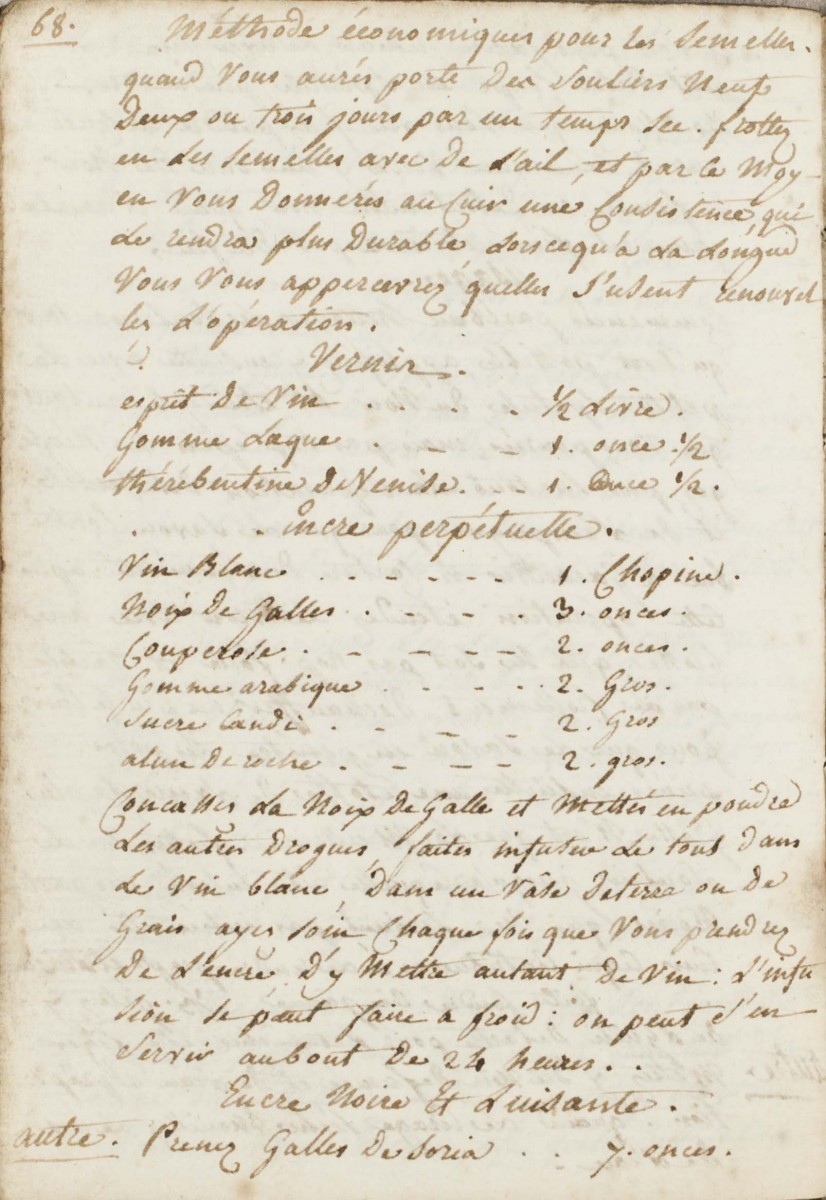 68.
Méthode économiques pour les Semelles.
quand Vous aurés porté Des Souliers Neufs
Deux ou trois jours par un temps sec. frottez
en les semelles avec De l'ail, et par ce Moy-
en Vous Donnerés au Cuir une Consistence qui
le rendra plus Durable, lorscequ'à la longue
Vous Vous appercevrez quelles s'usent renouvel
lez l'opération.
Vernis.
esprit De Vin . . . . 1/2 Livre.
Gomme Laque . - - 1. once 1/2
thérébentine De Venise. - - 1. Once 1/2.
. . Encre perpétuelle.
Vin Blanc . - - - - - 1. Chopine.
Noix De Galles . - - . 3. onces.
Couperose . - - - - 2. onces.
Gomme arabique . - - . 2. Gros.
Sucre Candi . - - - 2. Gros
alun De roche . - - - 2. gros.
Concassés la Noix De Galle et Mettés en poudre
Les autres Drogues, faites infuser le tout Dans
le Vin blanc, Dans un Vâse De terre ou De
Grais ayes soin Chaque fois que Vous prendrez
De L'encre, D'y Mettre autant De Vin : L'infu
sion se peut faire a froid : on peut s'en
Servir au bout De 24 heures. .
Encre Noire Et Luisante.
autre. Prenez Galles De Soria . . 7. onces.